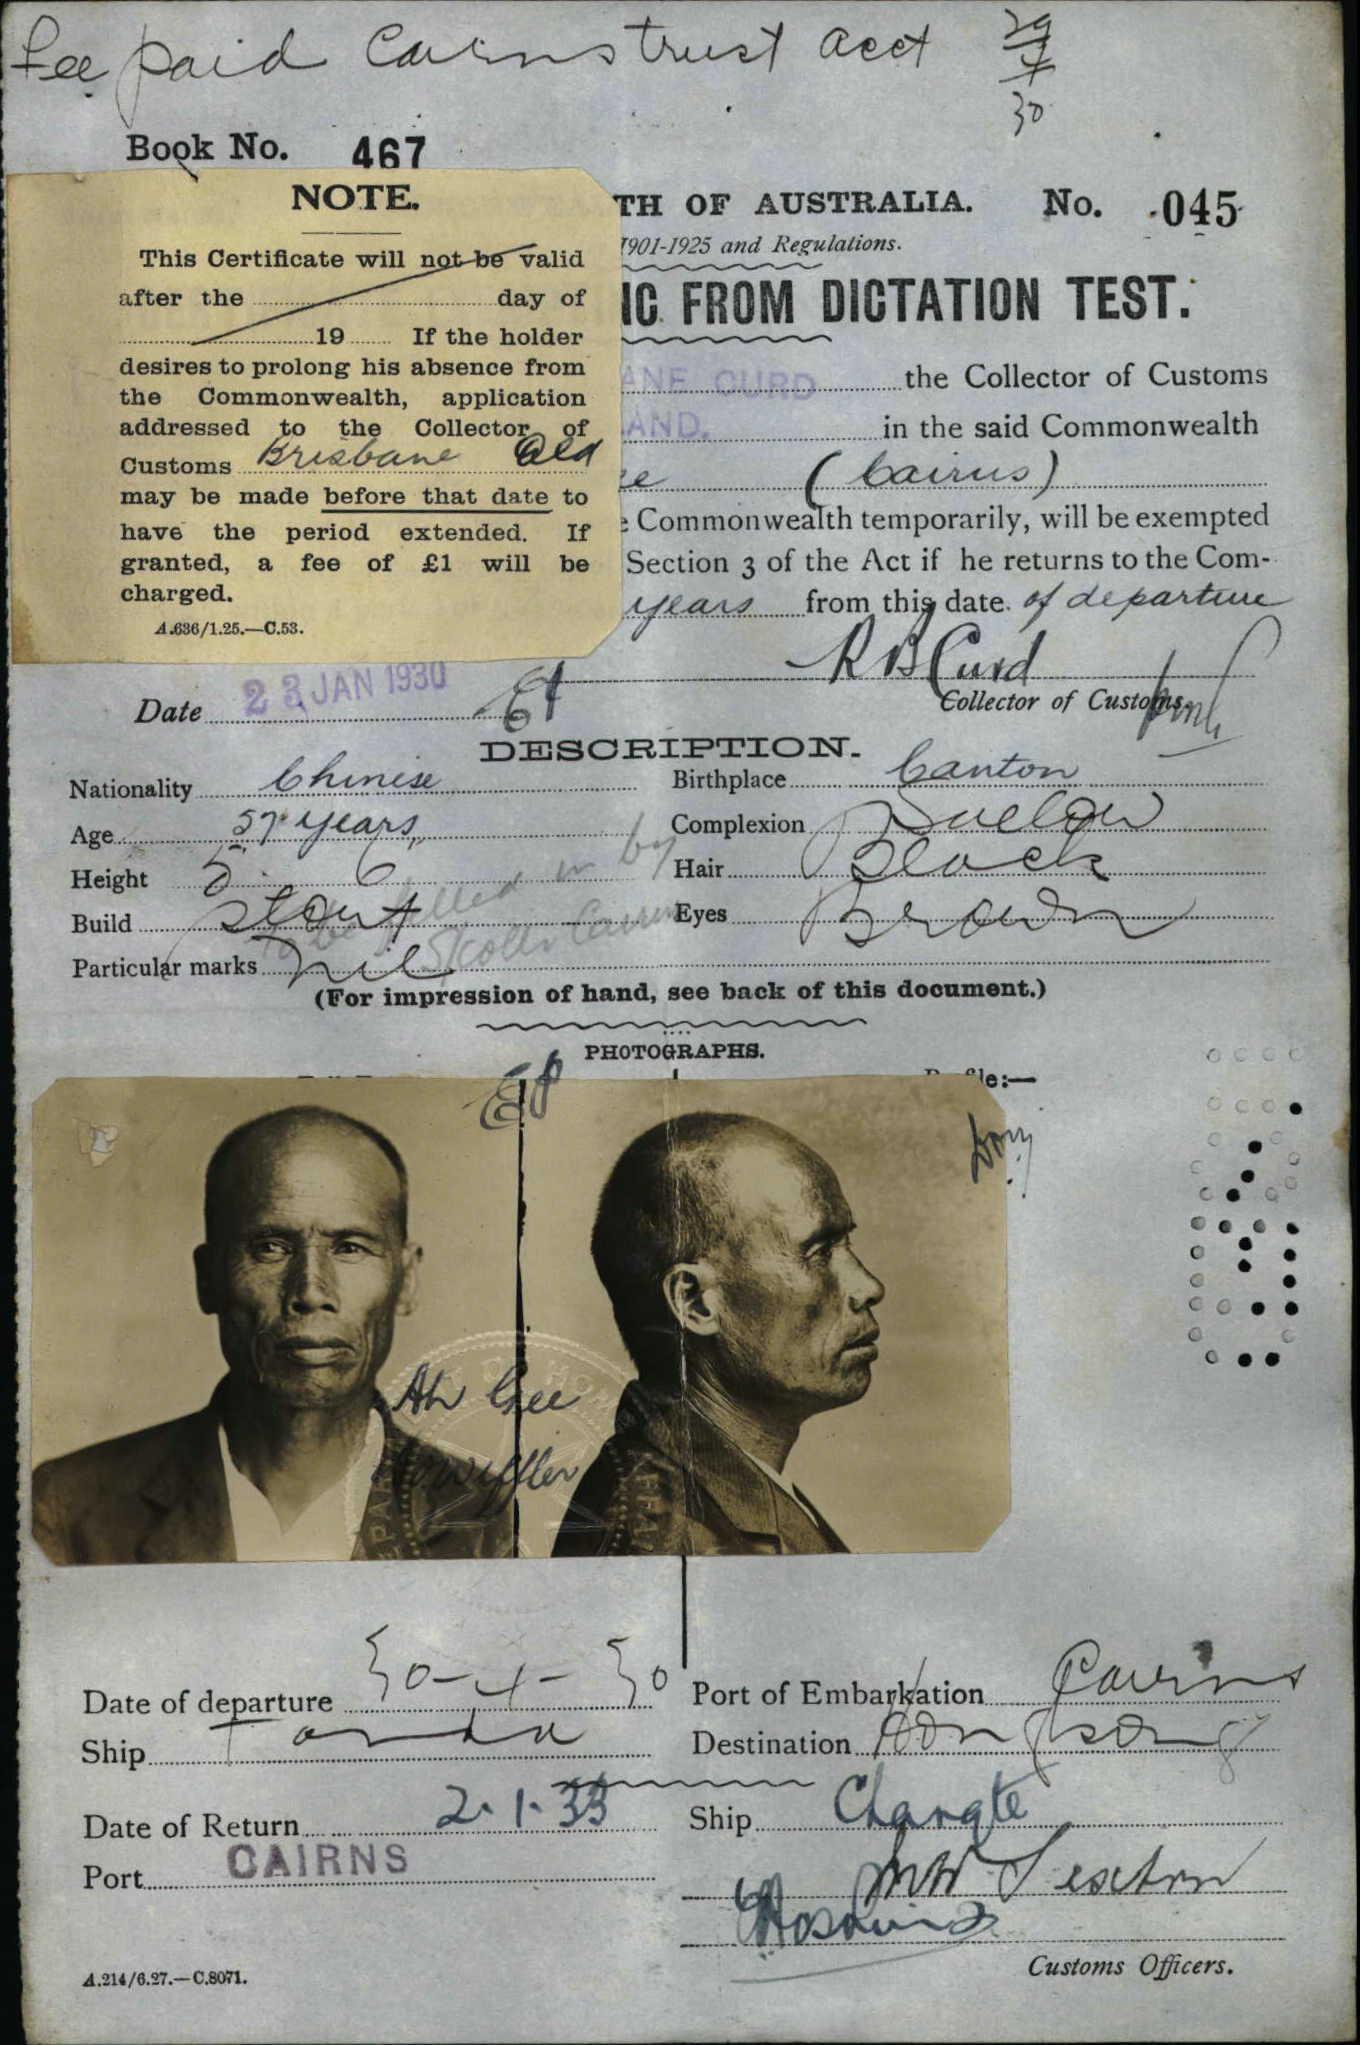 Fee paid Cairns trust acct 29/4/30
Book No. 467
NOTE.
This Certificate will not be valid
after the day of
19 If the holder
desires to prolong his absence from
the Commonwealth, application
addressed to the Collector of
Customs Brisbane Qld
may be made before that date to
have the period extended. If
granted, a fee of £1 will be
charged.
A.636/1.25.—C.53.
TH OF AUSTRALIA. No. 045
1901-1925 and Regulations.
NG FROM DICTATION TEST.
ANE CURD the Collector of Customs
LAND. in the said Commonwealth
ee (Cairns)
e Commonwealth temporarily, will be exempted
Section 3 of the Act if he returns to the Com-
years from this date of departure
R B Curd
Collector of Customs.
Date 23 JAN 1930
DESCRIPTION.
Nationality Chinese Birthplace Canton
Age 57 years Complexion Sallow
Height 5' 6" Hair Black
Build Stout Eyes Brown
to be filled in by
Particular marks nil
(For impression of hand, see back of this document.)
PHOTOGRAPHS.
Profile:—
Ah Gee
Date of departure 30-4-30 Port of Embarkation Cairns
Ship Tanda Destination Hongkong
Date of Return 2.1.33 Ship Changte
Port CAIRNS
Customs Officers.
A.214/6.27.—C.8071.